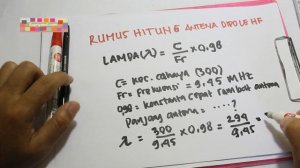 RUMUS HITUNG ANTENA DIPOLE HF
LAMDA (λ) = C/Fr × 0,98
C = Kec. cahaya (300)
Fr = Frekuensi = 9,45 MHz
0,98 = konstanta cepat rambat antena
Panjang antena = .....?
λ = 300/9,45 × 0,98 = 294/9,45 =